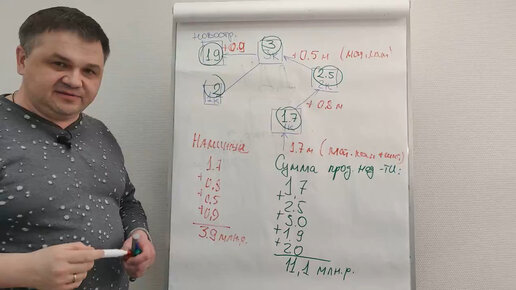 новостр.
1.9
+0.9
3
3К
+0.5м (мат.кап)
2.5
2К
2
2К
+0.8м
1.7
1К
1.7м (мат.кап+ипот)
Наличные
1.7
+0,8
+0,5
+0,9
3.9 млн.р.
Сумма прод. нед-ти:
1,7
+
2,5
+
3,0
+
1,9
+
2,0
11,1 млн.р.